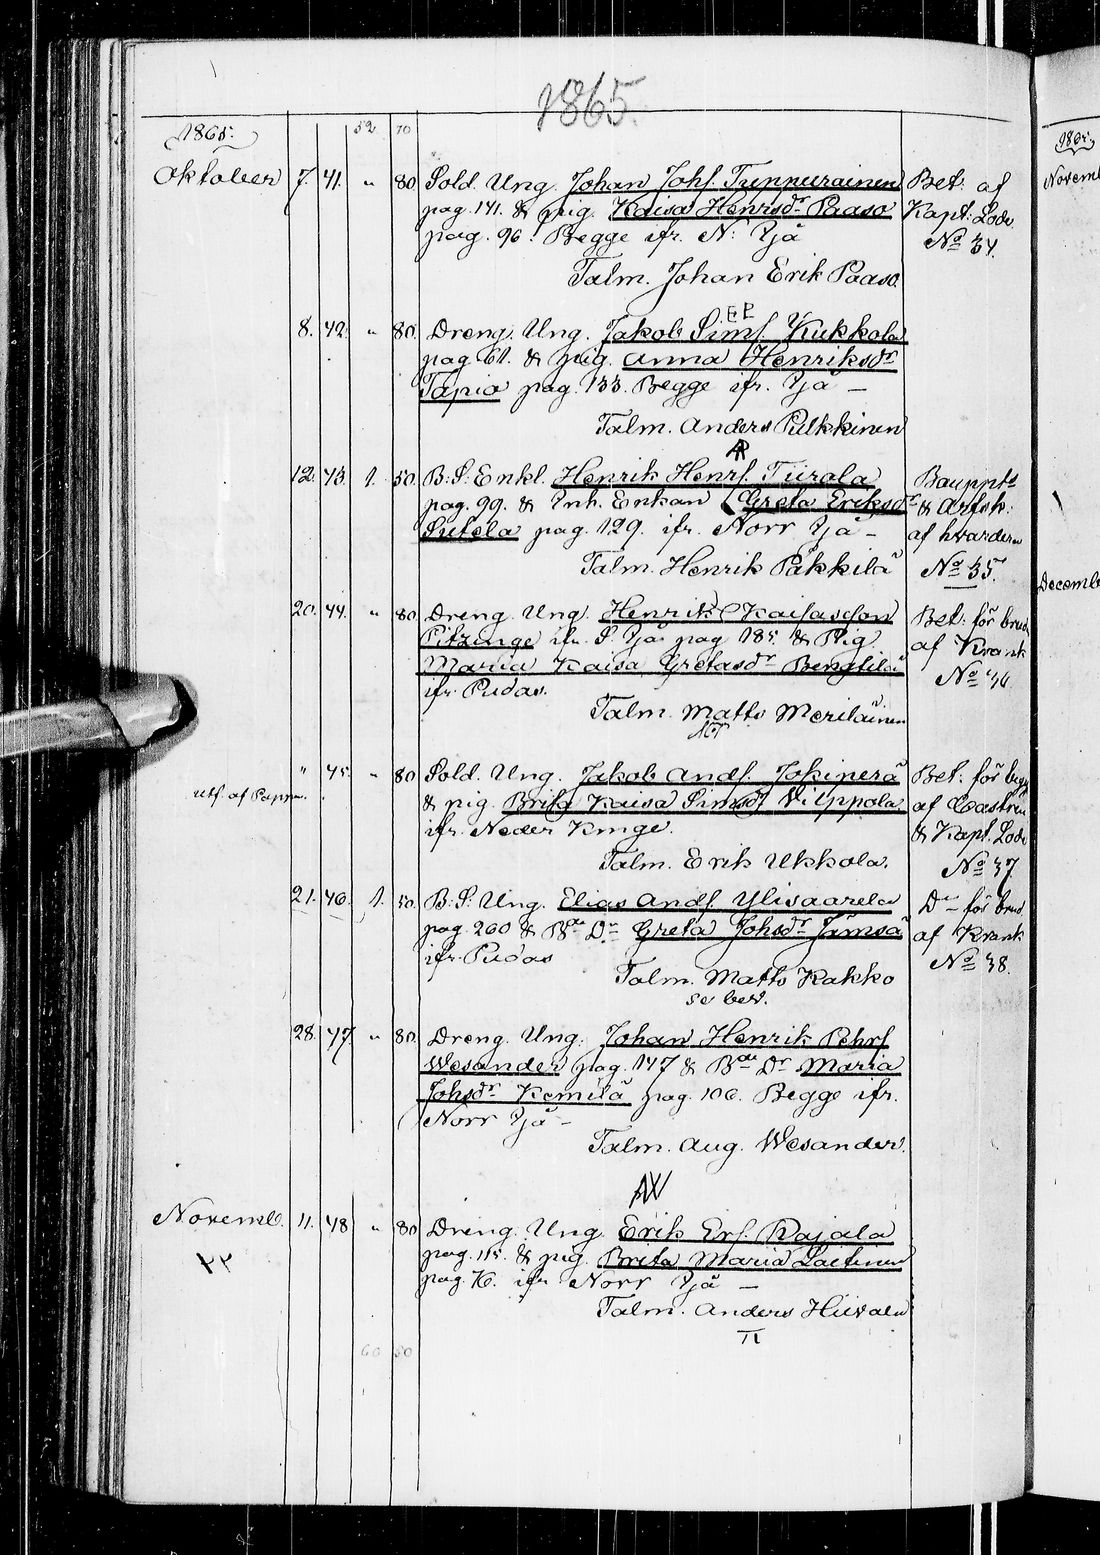 1865.
52 70
1865.
Oktober 7. 41. " 80. Sold. Ung. Johan Johs. Tuppurainen Bet: af
pag. 141. & pig. Kaisa Henrsdr Paaso Kapt: Lode
pag. 96. Begge ifr. N: Ijå No 34.
Talm. Johan Erik Paaso.
EP
8. 42. " 80. Dreng. Ung. Jakob Sims. Kukkola
pag. 61. & pig. Anna Henriksdr
Tapio pag. 133. Begge ifr. Ijå —
Talm. Anders Pulkkinen
AP
12. 43. 1. 50. B: S: Enkl. Henrik Henrs. Tiirola Bauppts
pag. 99. & Inh. Enkan Greta Eriksdr & Arfsk:
Sutela pag. 129. ifr. Norr Ijå — af hvardera
Talm. Henrik Päkkilä No 35.
20. 44. " 80. Dreng. Ung. Henrik Kaisasson Bet: för brud
Pitzinge ifr. S. Ijå pag. 185. & Pig. af Krank
Maria Kaisa Gretasdr Benglilä No 36.
ifr. Pudas.
Talm. Matts Meriläinen
" 45. " 80. Sold. Ung. Jakob Ands. Jokiperä Bet: för begg
utf. af Pappa. & pig. Brita Kaisa Simsdr Vilppola, af Castrén
ifr. Neder Kinge. & Kapt. Lode
Talm. Erik Ukkola. No 37.
21. 46. 1. 50. B: S: Ung. Elias Ands. Ylisaarela Do för brud
pag. 260 & Bde Dr Greta Johsdr Jämsä af Krank
ifr. Pudas No 38.
Talm. Matts Kakko
se bet.
28. 47. " 80. Dreng. Ung. Johan Henrik Pehrs.
Wesander pag. 147 & Bde Dr Maria
Johsdr Kemilä pag. 106. Begge ifr.
Norr Ijå —
Talm. Aug. Wesander.
AW
Novemb. 11. 48 " 80. Dreng. Ung. Erik Ers. Kajala
pag. 115. & pig. Brita Maria Laitinen
pag. 76. ifr. Norr Ijå —
Talm. Anders Hiivala
60 50
1865.
Novemb
Decembe